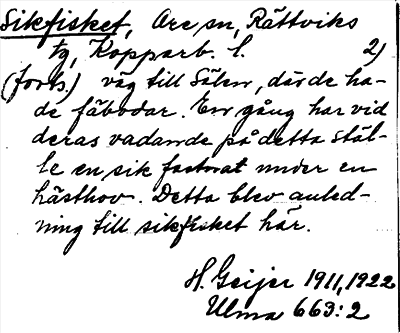 Sikfisket, Ore sn, Rättviks
tg, Kopparb. l. 2)
(forts.) väg till Sälen, där de ha-
de fäbodar. En gång har vid
deras vadande på detta stäl-
le en sik fastnat under en
hästhov. Detta blev anled-
ning till sikfisket här.
H. Geijer 1911, 1922
Ulma 663:2